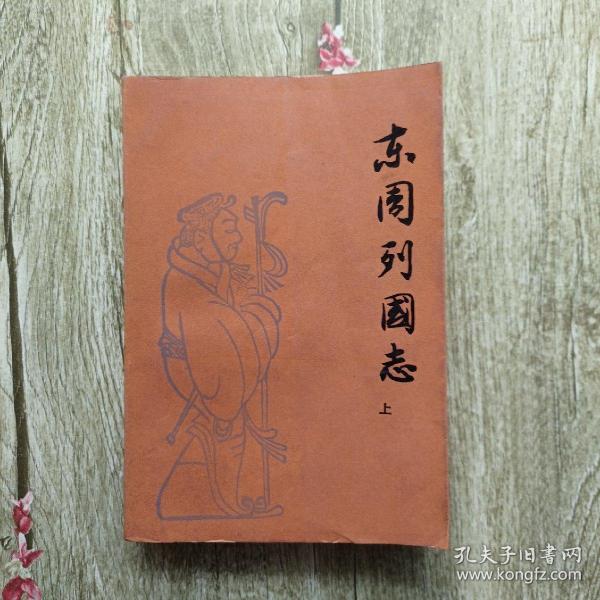 东周列國志
上
孔夫子旧書网
www.kongfz.com